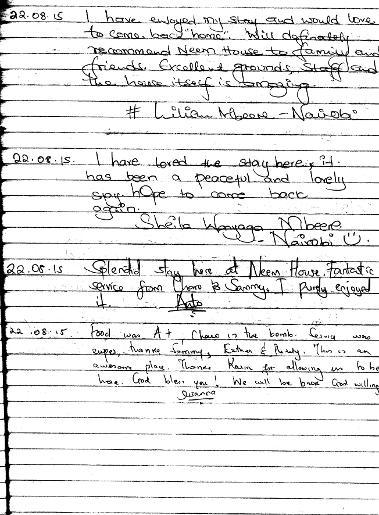 22.08.15 I have enjoyed my stay and would love
to come back "home". Will definately
recommend Neem House to family and
friends. Excellent grounds, staff and
the house itself is amazing
# Lilian Mbeere - Nairobi
22.08.15. I have loved the stay here, it
has been a peaceful and lovely
stay. hope to come back
again.
Sheila Mbeere
- Nairobi ☺.
22.08.15 Splendid stay here at Neem House. Fantastic
service from & Sammy. I enjoyed
it.
22.08.15. Food was A+! is the bomb. was
super, thanks Sammy, Esther & This is an
awesome place. Thanks for allowing us to be
here. God bless you! We will be back God willing